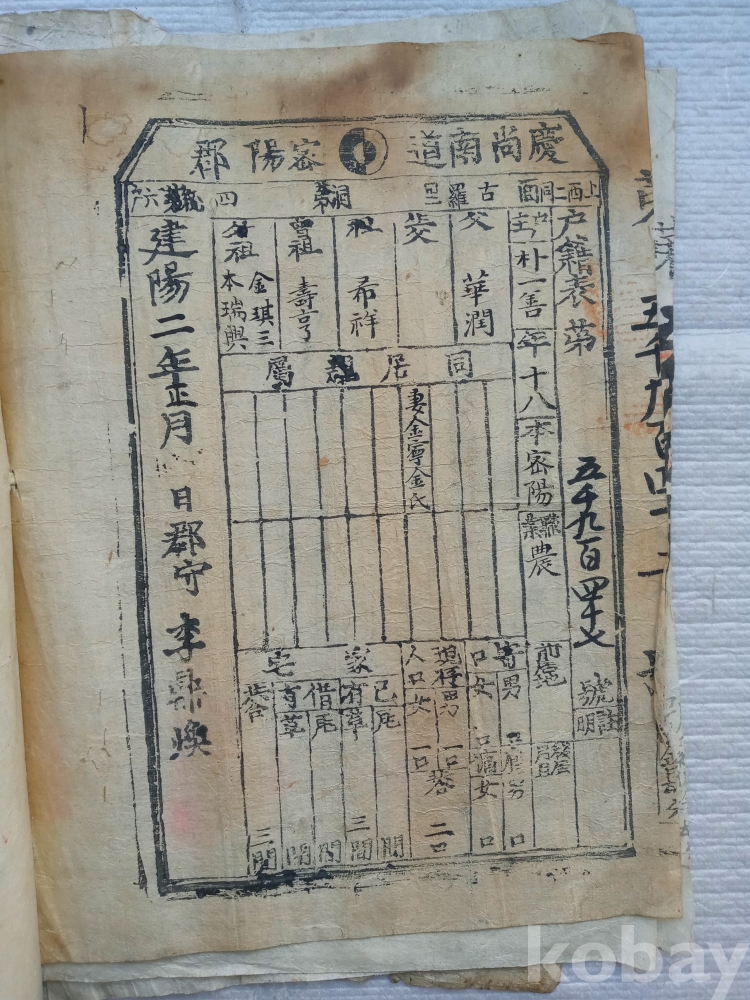 慶尚南道 密陽郡
上西二同面 古羅里 洞 第四統 第六戶
戶籍表 第五千九百四十七號
註明
戶主 朴一善 年十八 本密陽 職業 農
前居地
移居 月日
父 華潤
生父
祖 希祥
曾祖 壽亨
外祖 金琪三 本瑞興
同居親屬
妻金寧金氏
寄口 男 口 女 口
雇傭 男 口 女 口
現存人口 男 一口 女 一口 共合 二口
家宅
己有 瓦 間 草 三間
借有 瓦 間 草 間
共合 三間
建陽二年正月 日 郡守 李鼎煥
五千九百四十
kobay